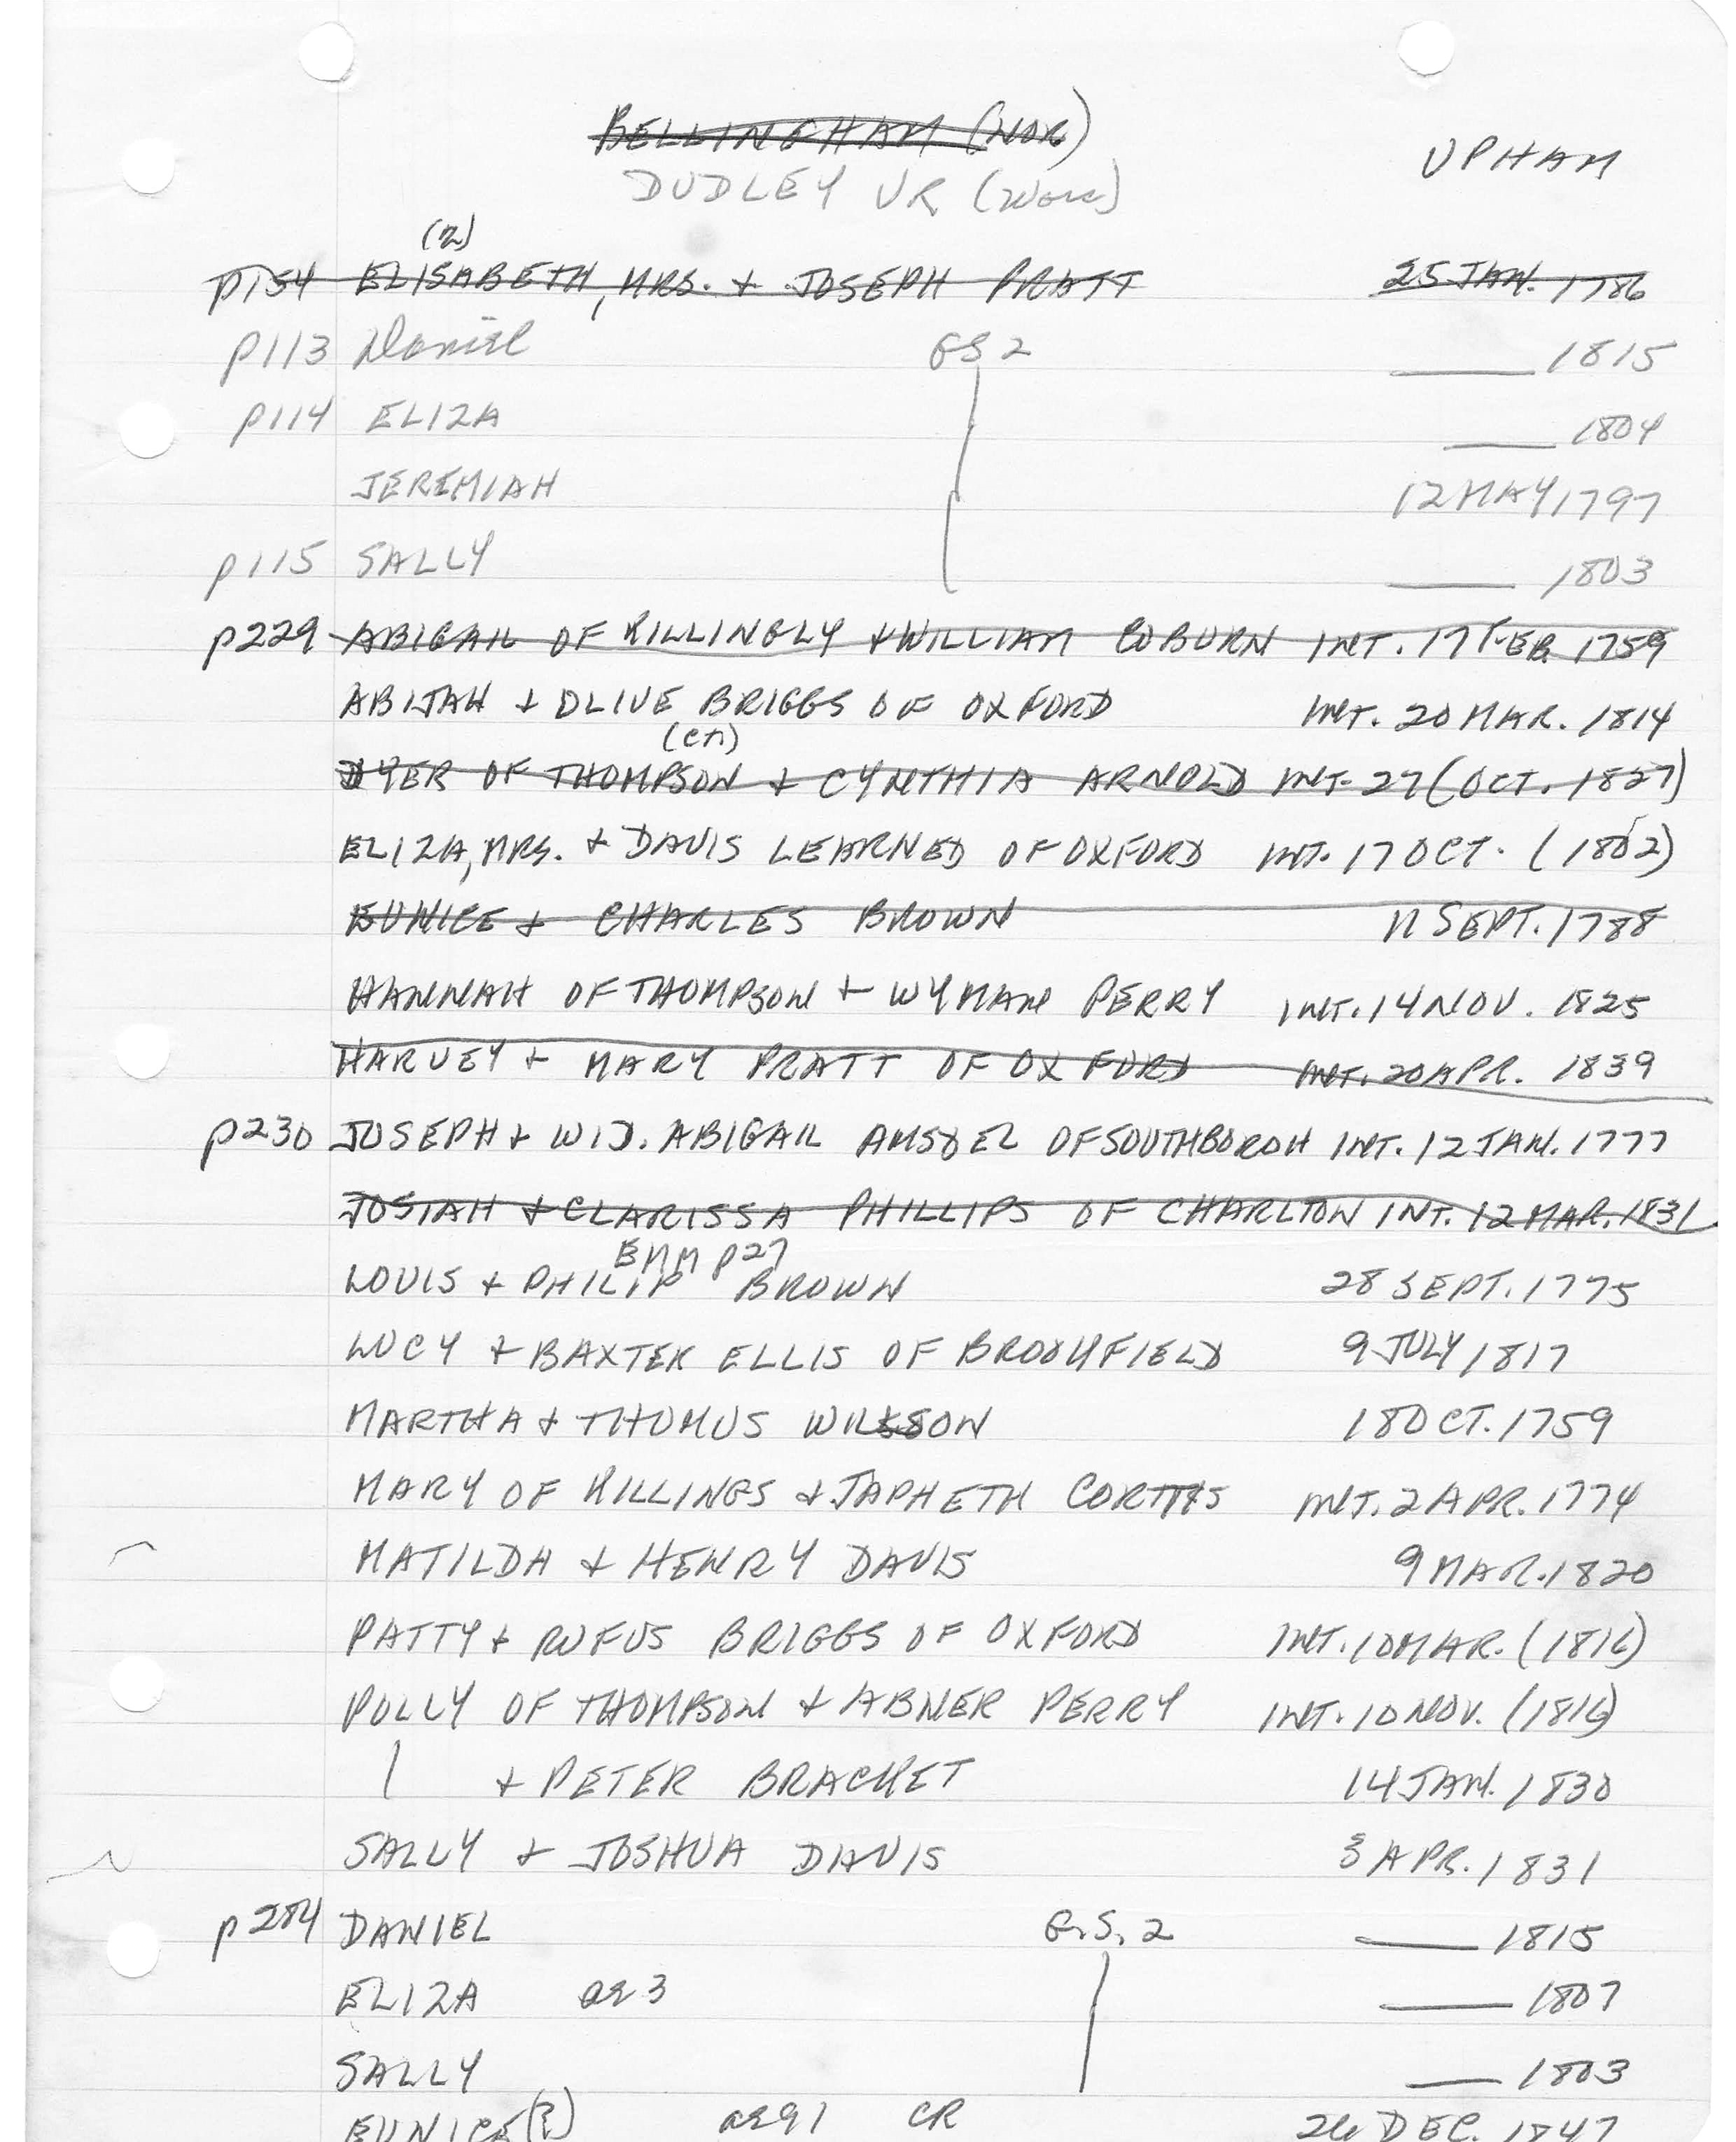 BELLINGHAM (NOR)
DUDLEY VR (Worc)
UPHAM
(2)
p154 ELISABETH, MRS. + JOSEPH PRATT 25 JAN. 1786
p113 Daniel GS 2 — 1815
p114 ELIZA — 1804
JEREMIAH 12 MAY 1797
p115 SALLY — 1803
p229 ABIGAIL OF KILLINGLY + WILLIAM COBURN INT. 17 FEB. 1759
ABIJAH + OLIVE BRIGGS OF OXFORD INT. 20 MAR. 1814
(ct)
DYER OF THOMPSON + CYNTHIA ARNOLD INT. 27 (OCT. 1827)
ELIZA, MRS. + DAVIS LEARNED OF OXFORD INT. 17 OCT. (1802)
EUNICE + CHARLES BROWN 11 SEPT. 1788
HANNAH OF THOMPSON + WYMAN PERRY INT. 14 NOV. 1825
HARVEY + MARY PRATT OF OXFORD INT. 20 APR. 1839
p230 JOSEPH + WID. ABIGAIL AMSDEL OF SOUTHBOROH INT. 12 JAN. 1777
JOSIAH + CLARISSA PHILLIPS OF CHARLTON INT. 12 MAR. 1831
BMM p27
LOUIS + PHILIP BROWN 28 SEPT. 1775
LUCY + BAXTER ELLIS OF BROOKFIELD 9 JULY 1817
MARTHA + THOMUS WILSON 18 OCT. 1759
MARY OF KILLINGS + JAPHETH CORTIS INT. 2 APR. 1774
MATILDA + HENRY DAVIS 9 MAR. 1820
PATTY + RUFUS BRIGGS OF OXFORD INT. 10 MAR. (1816)
POLLY OF THOMPSON + ABNER PERRY INT. 10 NOV. (1816)
+ PETER BRACKET 14 JAN. 1830
SALLY + JOSHUA DAVIS 3 APR. 1831
p284 DANIEL G.S. 2 — 1815
ELIZA ae 3 — 1807
SALLY — 1803
EUNICE (?) ae 91 CR 26 DEC. 1847